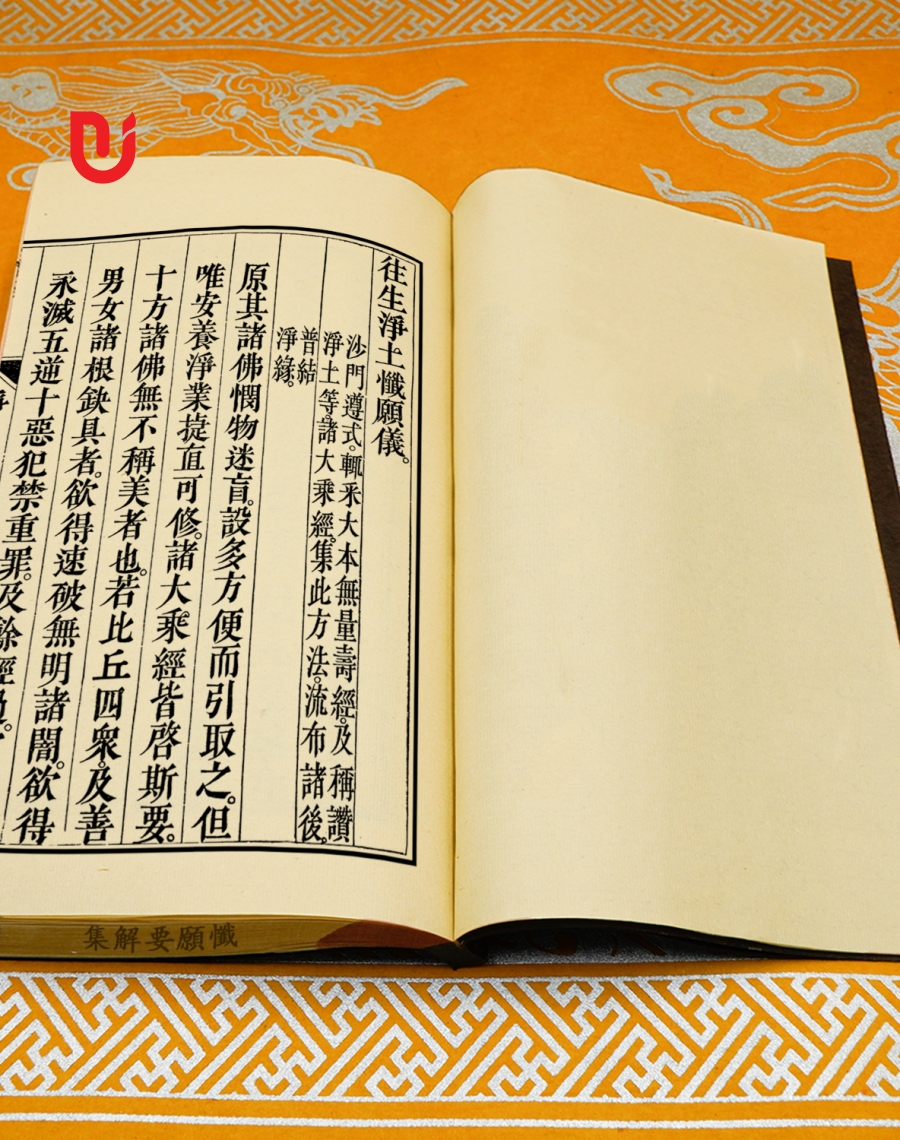 往生淨土懺願儀。
沙門遵式。輒采大本無量壽經。及稱讚
淨土等。諸大乘經。集此方法。流布諸後。
普結
淨緣。
原其諸佛憫物迷盲。設多方便而引取之。但
唯安養淨業捷直可修。諸大乘經皆啓斯要。
十方諸佛無不稱美者也。若比丘四衆。及善
男女諸根缺具者。欲得速破無明諸闇。欲得
永滅五逆十惡犯禁重罪。及
懺願要解集